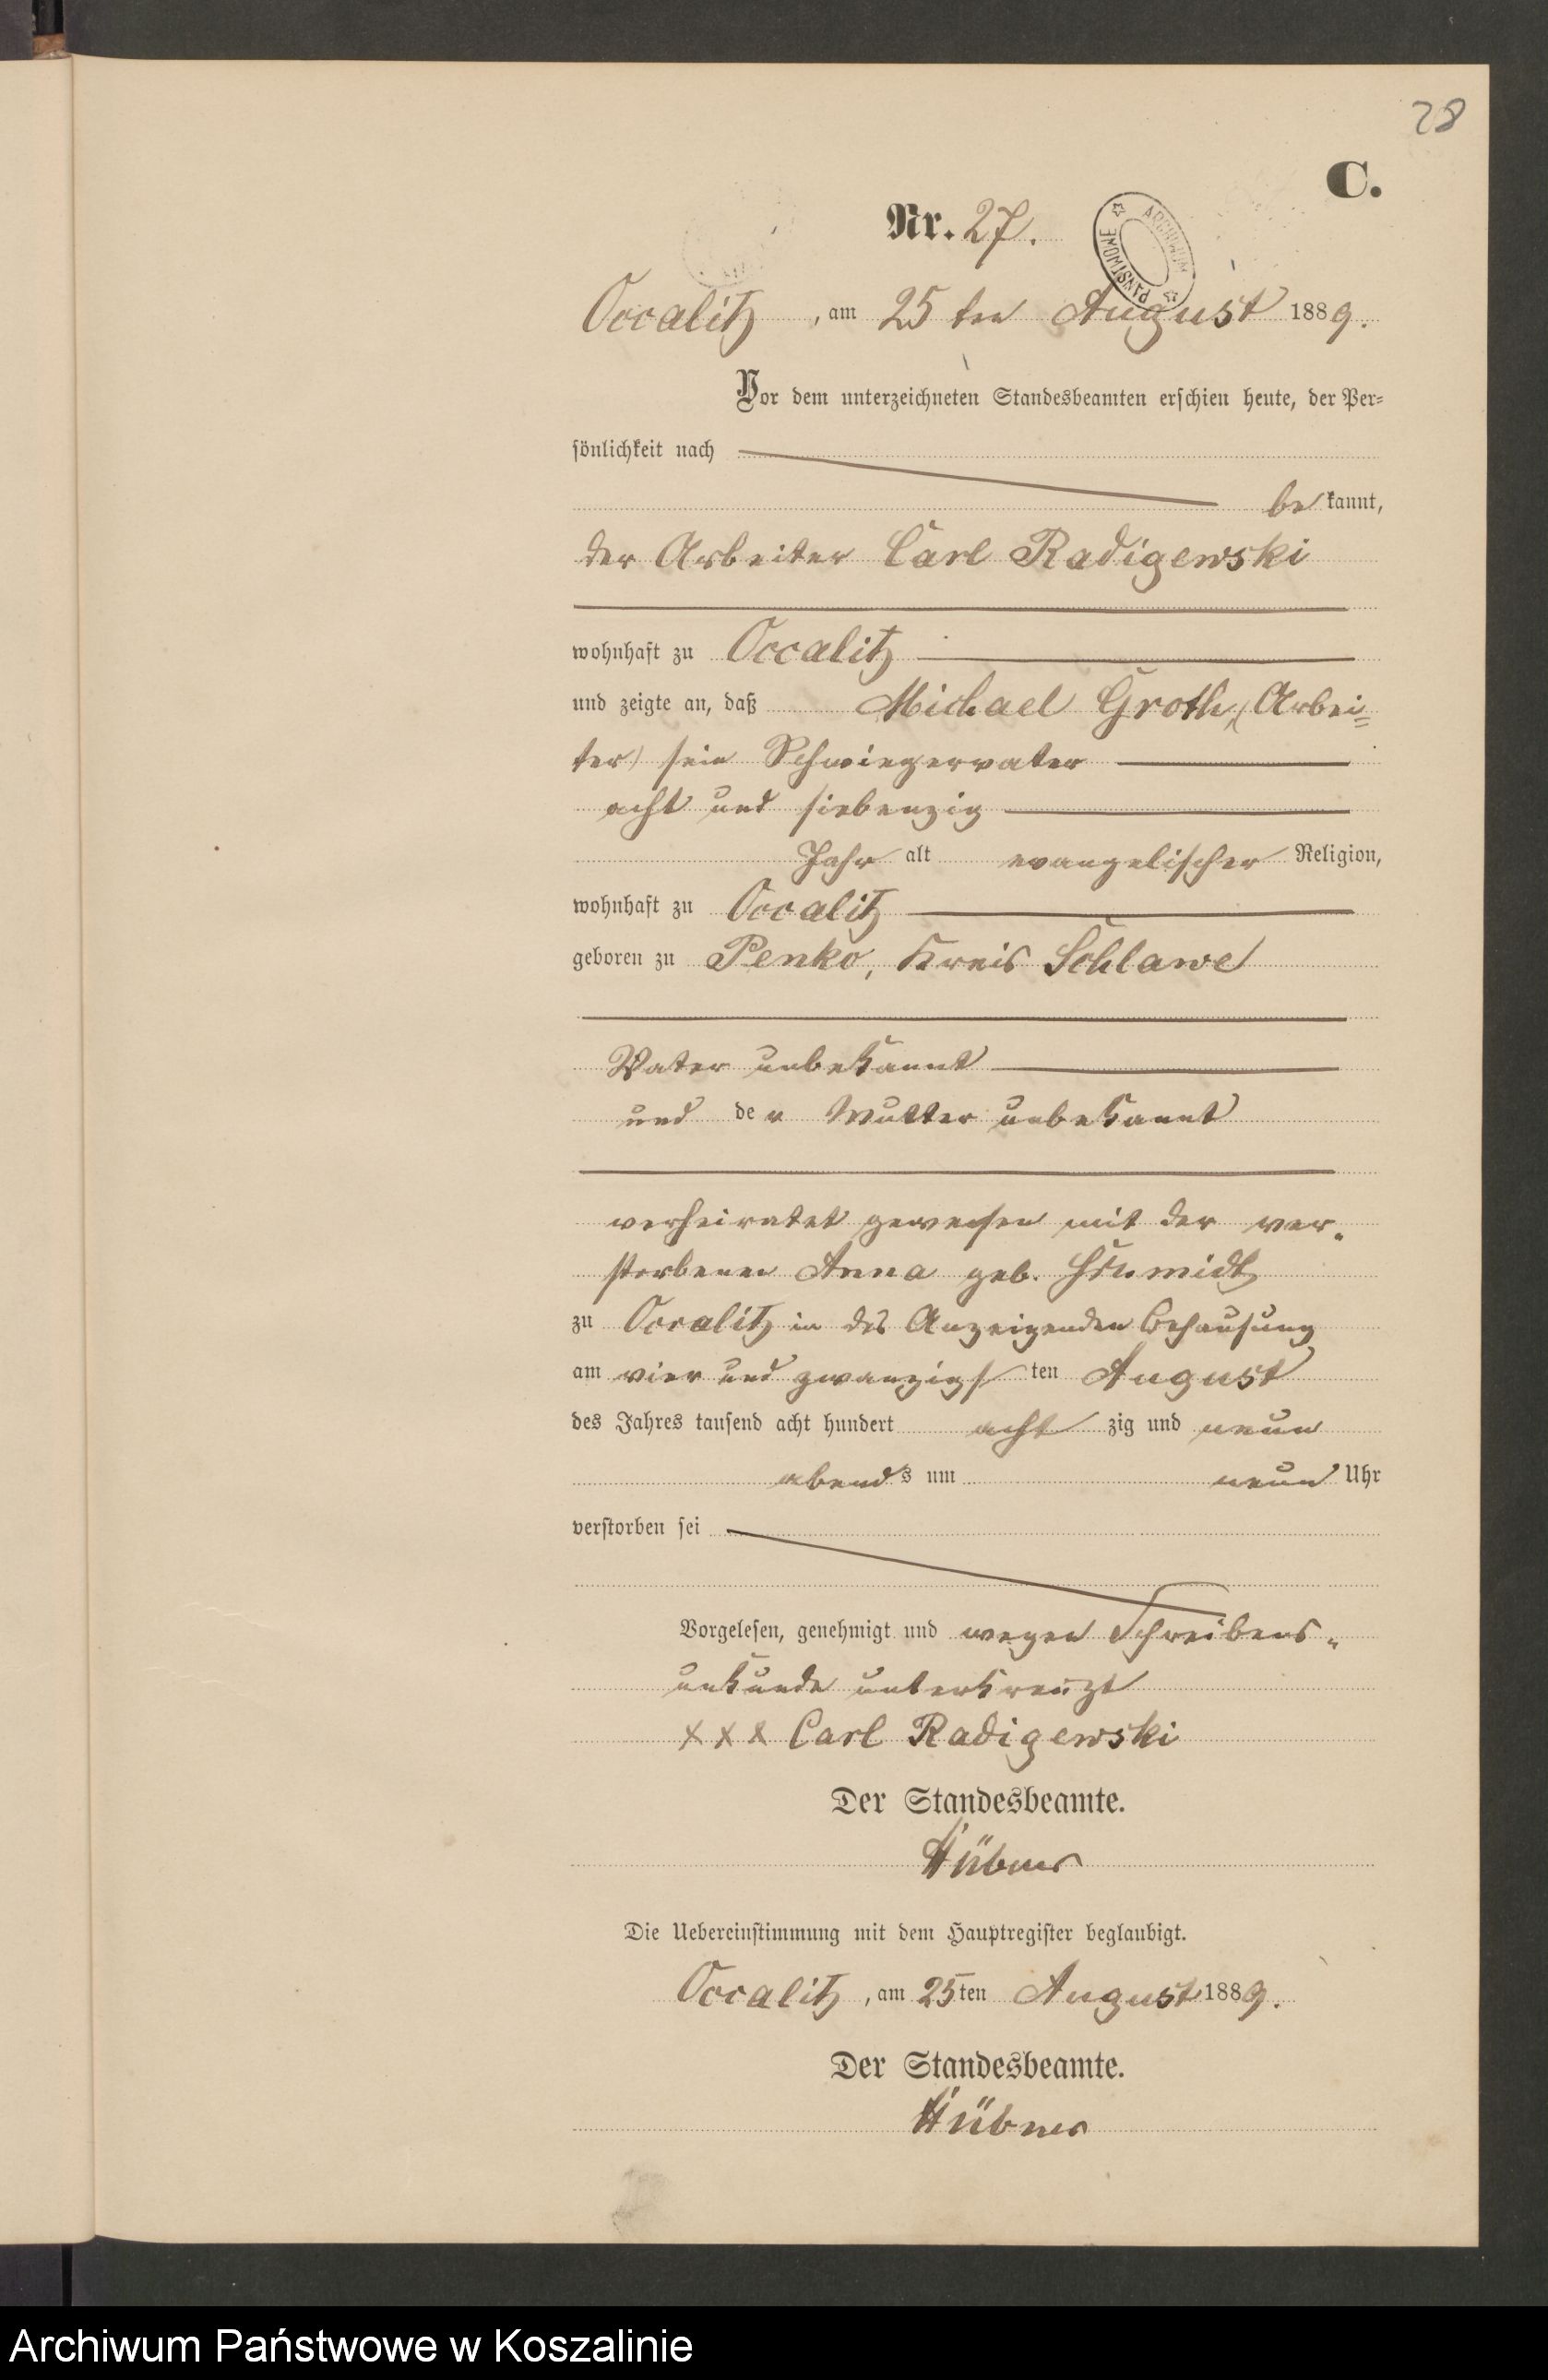 28
C.
Nr. 27.
ARCHIWUM PAŃSTWOWE
Occalitz, am 25 ten August 1889.
Vor dem unterzeichneten Standesbeamten erschien heute, der Per-
sönlichkeit nach
be kannt,
der Arbeiter Carl Radigewski
wohnhaft zu Occalitz
und zeigte an, daß Michael Groth, (Arbei-
ter) sein Schwiegervater
acht und siebenzig
Jahr alt evangelischer Religion,
wohnhaft zu Occalitz
geboren zu Penko, Kreis Schlawe
Vater unbekannt
und der Mutter unbekannt
verheiratet gewesen mit der ver-
storbenen Anna geb. Schmidt
zu Occalitz in des Anzeigenden Behausung
am vier und zwanzigsten August
des Jahres tausend acht hundert acht zig und neun
abends um neun Uhr
verstorben sei
Vorgelesen, genehmigt und wegen Schreibens-
unkunde unterkreuzt
XXX Carl Radigewski
Der Standesbeamte.
Hübner
Die Uebereinstimmung mit dem Hauptregister beglaubigt.
Occalitz, am 25ten August 1889.
Der Standesbeamte.
Hübner
Archiwum Państwowe w Koszalinie